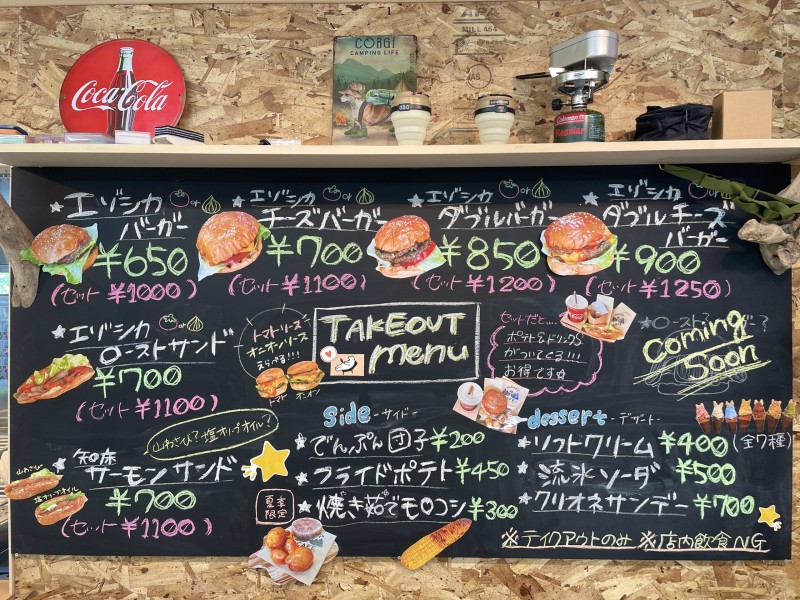 CORGI
CAMPING LIFE
MILL 464
Coca-Cola
Coleman
Regular
★エゾシカ or
バーガー
¥650
(セット ¥1000)
★エゾシカ or
チーズバーガー
¥700
(セット ¥1100)
★エゾシカ or
ダブルバーガー
¥850
(セット ¥1200)
★エゾシカ or
ダブルチーズ
バーガー
¥900
(セット ¥1250)
★エゾシカ or
ローストサンド
¥700
(セット ¥1100)
トマトソース
オニオンソース
えらべる!!!
トマト オニオン
TAKEOUT
menu
セットだと...
ポテト&ドリンクが
がついてくる!!!
お得です☆
Coming
Soon
山わさび?塩オリーブオイル?
★知床
サーモンサンド
山わさび
塩オリーブオイル
¥700
(セット ¥1100)
Side -サイド-
★でんぷん団子 ¥200
★フライドポテト ¥450
夏季
限定
★焼き茹でモロコシ ¥300
dessert -デザート-
★ソフトクリーム ¥400 (全7種)
★流氷ソーダ ¥500
★クリオネサンデー ¥700
※テイクアウトのみ ※店内飲食NG